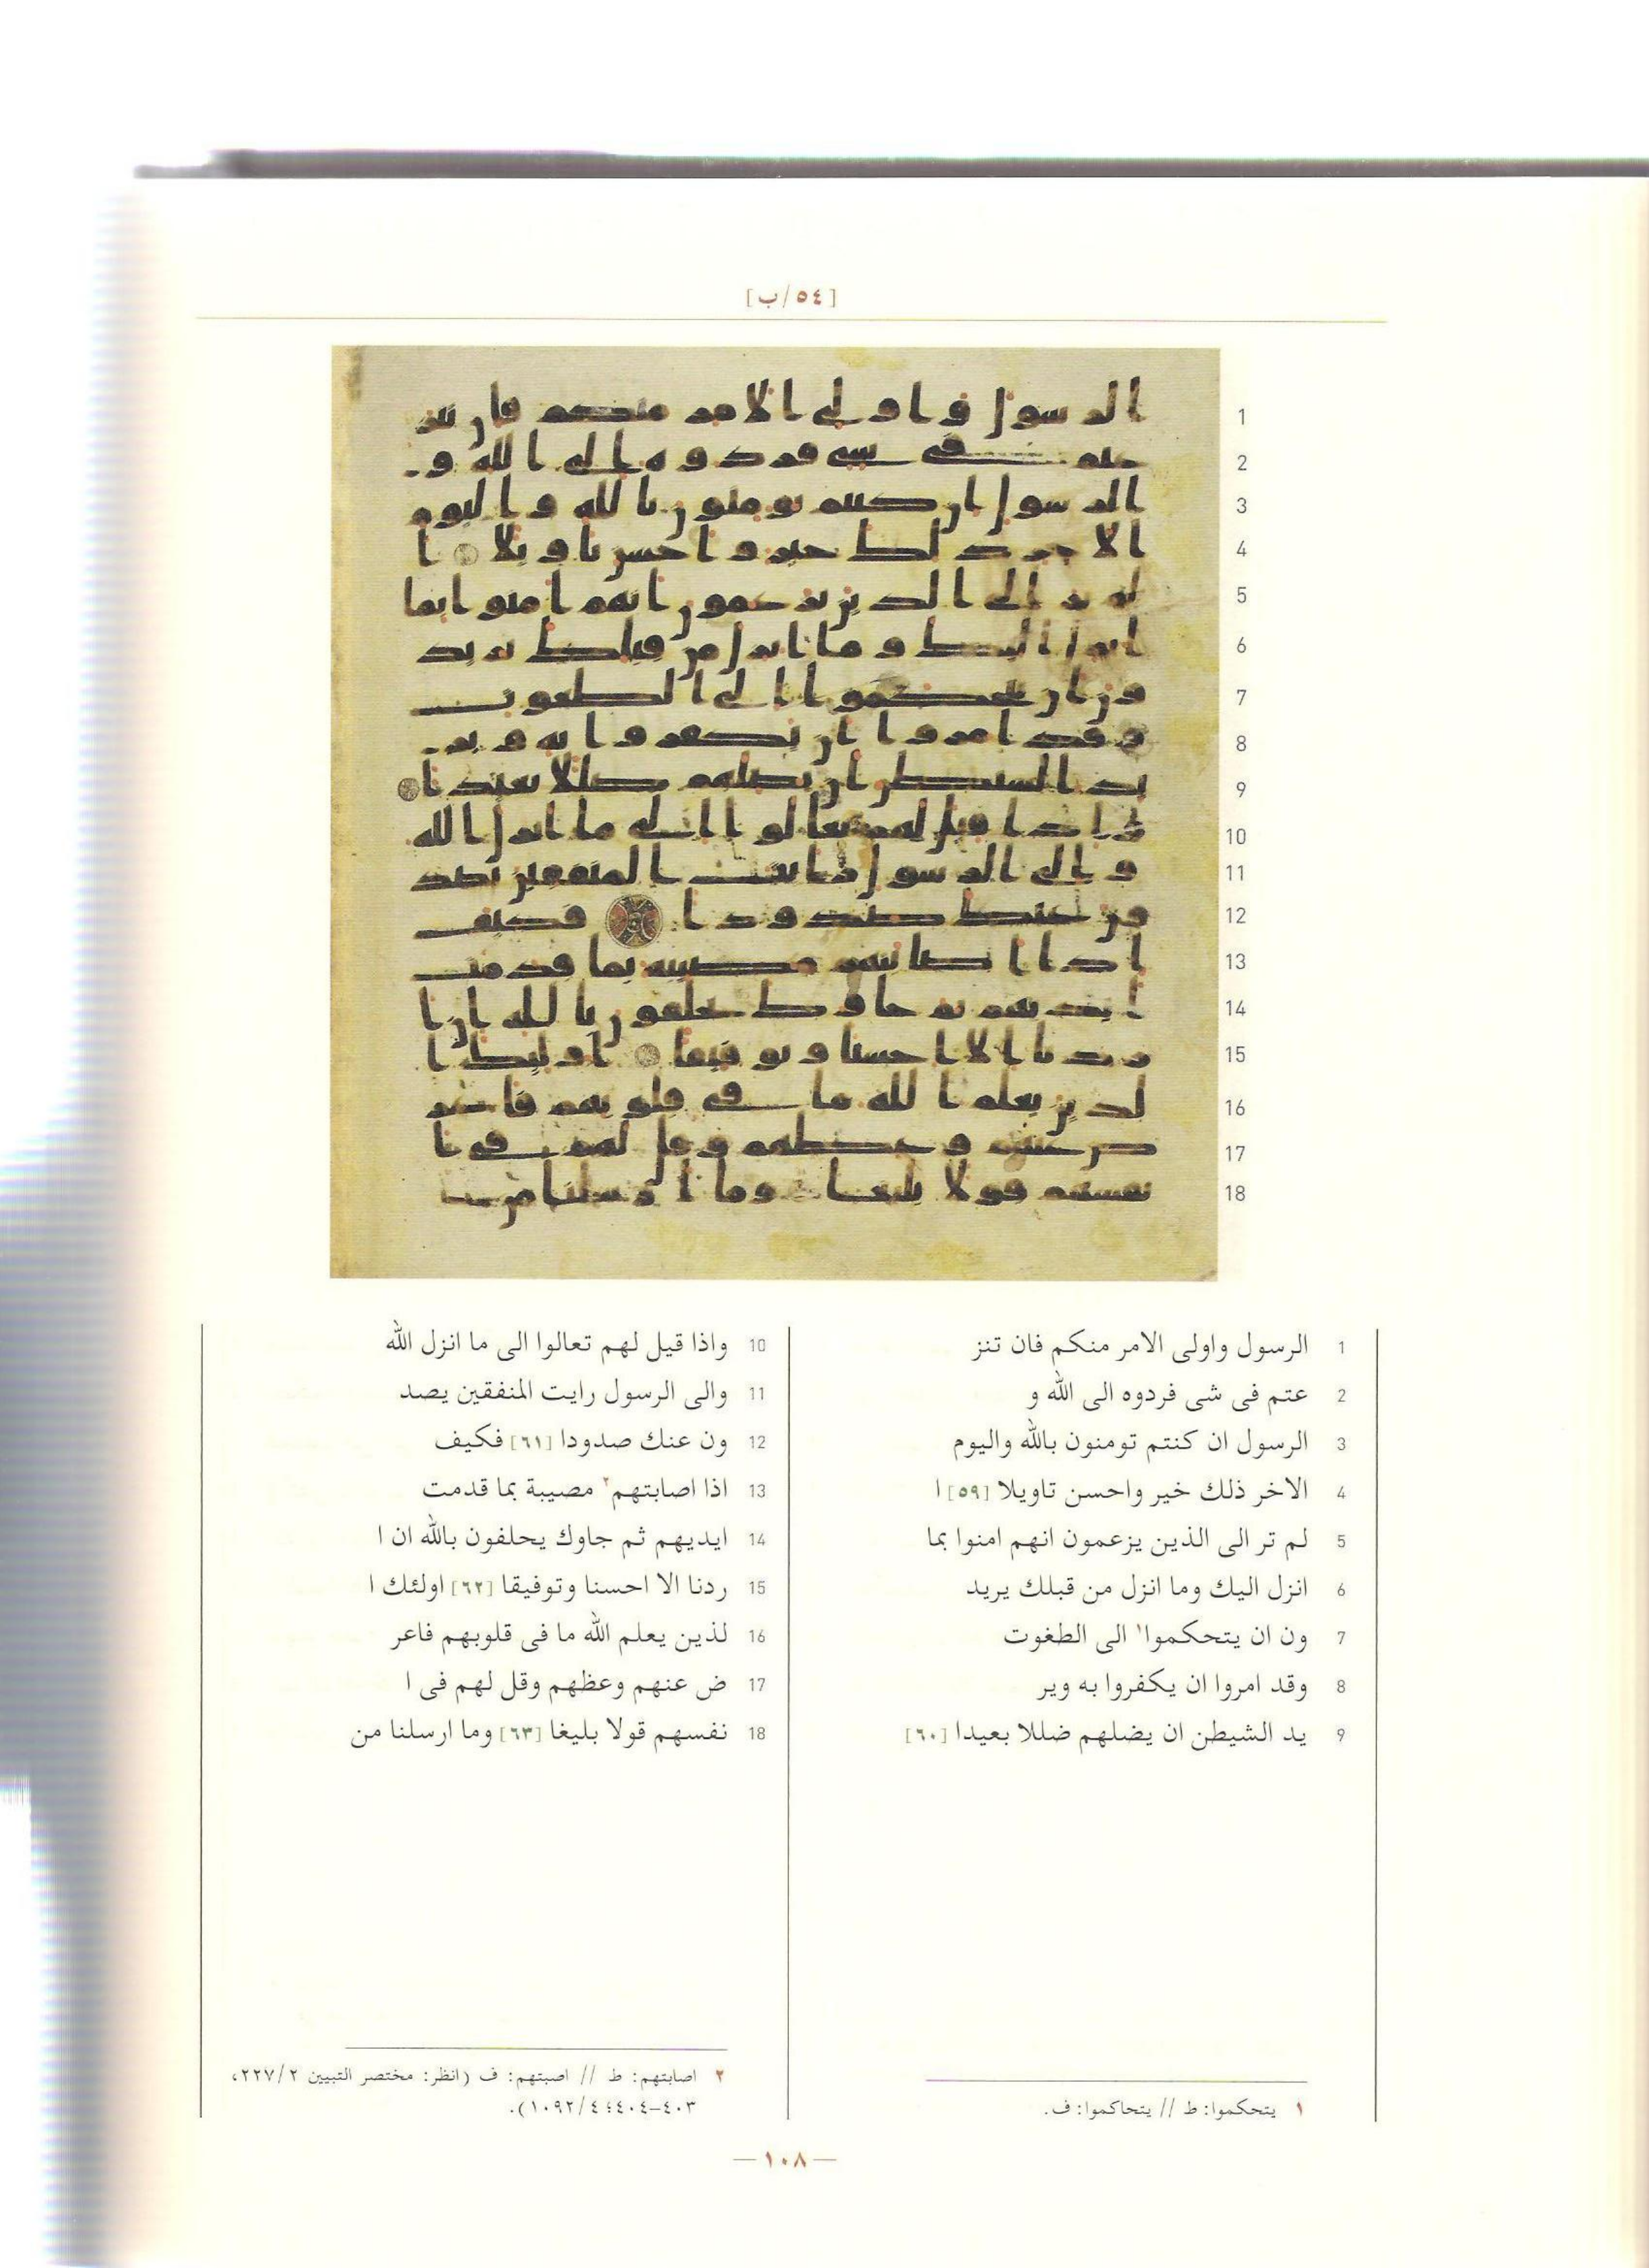 [٥٤/ب]
1 الرسول واولى الامر منكم فان تنز
2 عتم فى شى فردوه الى الله و
3 الرسول ان كنتم تومنون بالله واليوم
4 الاخر ذلك خير واحسن تاويلا [٥٩] ا
5 لم تر الى الذين يزعمون انهم امنوا بما
6 انزل اليك وما انزل من قبلك يريد
7 ون ان يتحكموا١ الى الطغوت
8 وقد امروا ان يكفروا به وير
9 يد الشيطن ان يضلهم ضللا بعيدا [٦٠]
10 واذا قيل لهم تعالوا الى ما انزل الله
11 والى الرسول رايت المنفقين يصد
12 ون عنك صدودا [٦١] فكيف
13 اذا اصابتهم٢ مصيبة بما قدمت
14 ايديهم ثم جاوك يحلفون بالله ان ا
15 ردنا الا احسنا وتوفيقا [٦٢] اولئك ا
16 لذين يعلم الله ما فى قلوبهم فاعر
17 ض عنهم وعظهم وقل لهم فى ا
18 نفسهم قولا بليغا [٦٣] وما ارسلنا من
١ يتحكموا: ط // يتحاكموا: ف.
٢ اصابتهم: ط // اصبتهم: ف (انظر: مختصر التبيين ٢/٢٢٧،
٤٠٣-٤٠٤؛ ٤/١٠٩٢).
—١٠٨—